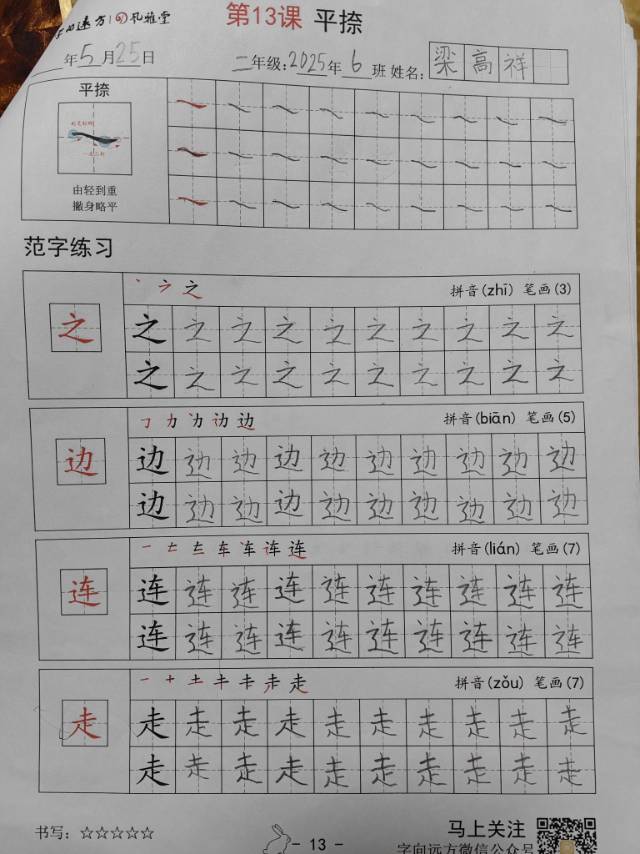 字向远方 孔雅堂
第13课 平捺
年5月25日 二年级:2025年6班 姓名: 梁高祥
平捺
由轻到重
撇身略平
范字练习
丶 ㇇ 之 拼音(zhī) 笔画(3)
之 之 之 之 之 之 之 之 之 之 之
之 之 之 之 之 之 之 之 之 之
𠃌 力 边 边 拼音(biān) 笔画(5)
边 边 边 边 边 边 边 边 边 边 边
边 边 边 边 边 边 边 边 边 边
一 车 连 连 拼音(lián) 笔画(7)
连 连 连 连 连 连 连 连 连 连 连
连 连 连 连 连 连 连 连 连 连
一 十 土 走 拼音(zǒu) 笔画(7)
走 走 走 走 走 走 走 走 走 走 走
走 走 走 走 走 走 走 走 走 走
书写: ☆☆☆☆☆
- 13 -
马上关注
字向远方微信公众号